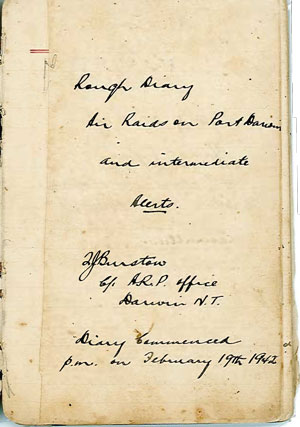 Rough Diary
Air Raids on Port Darwin
and intermediate
Alerts.
Burstow
c/. A.R.P. Office
Darwin N.T.
Diary Commenced
p.m. on February 19th 1942